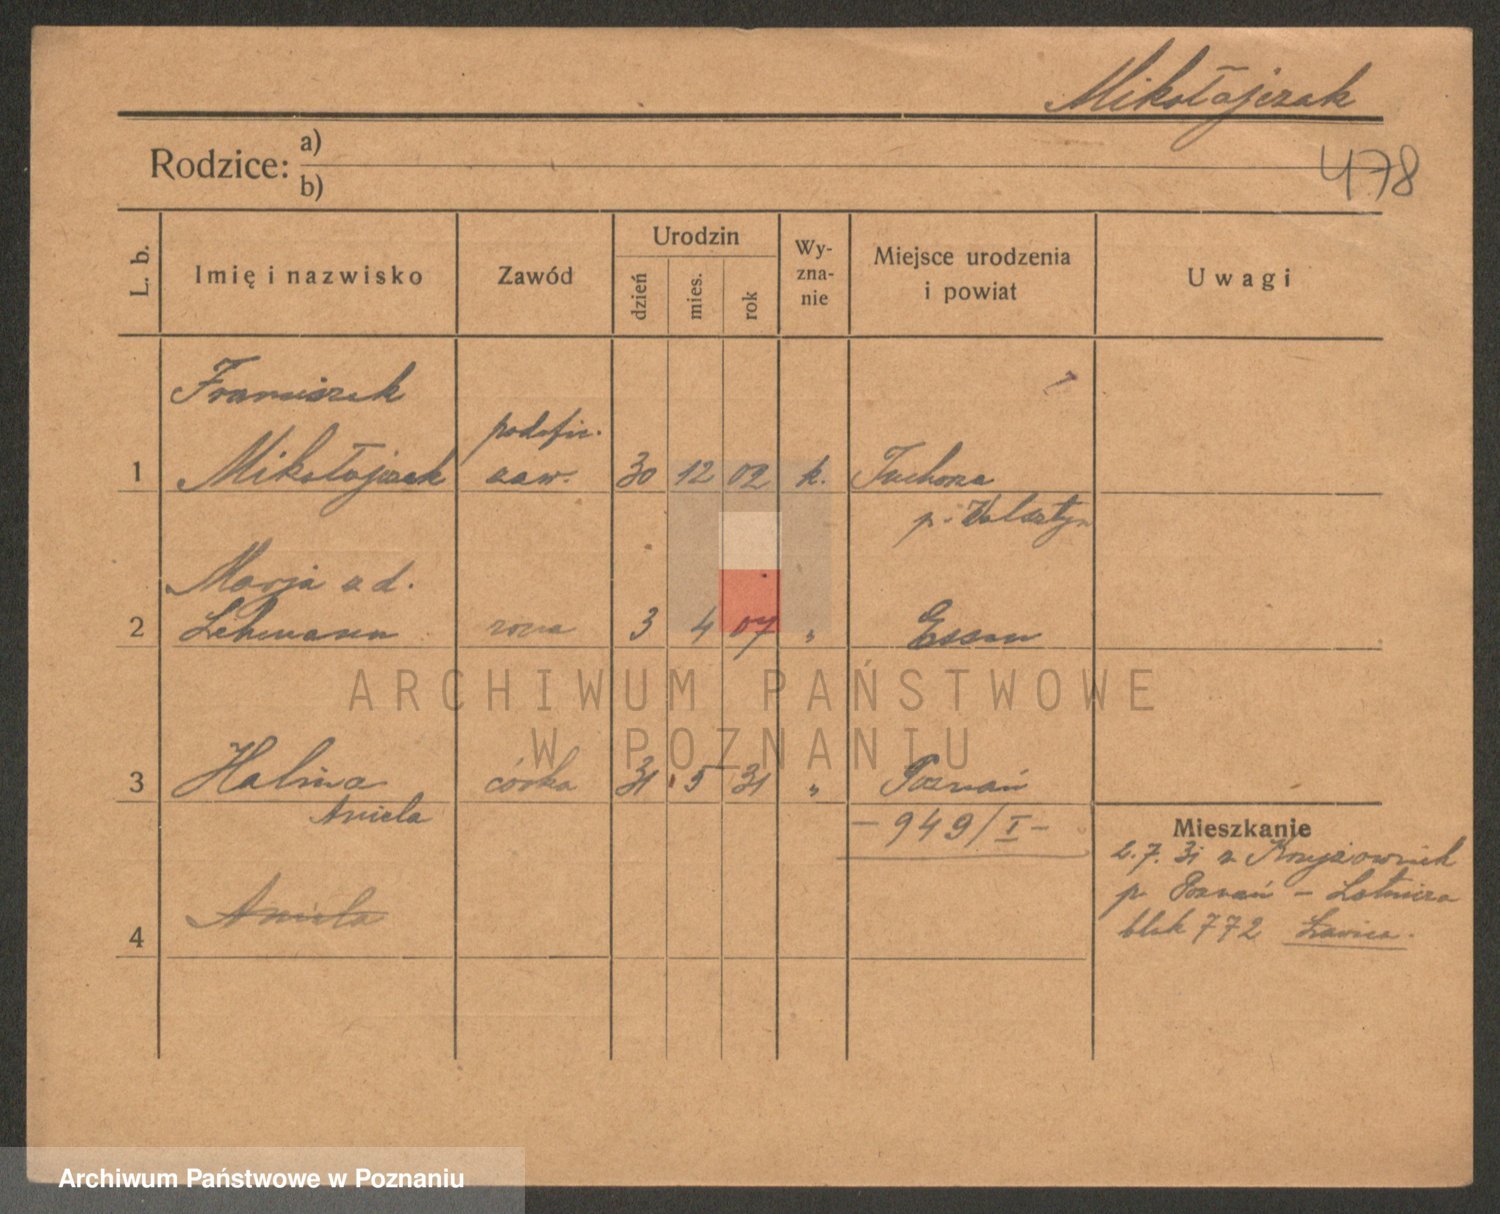 Mikołajczak
478
Rodzice: a)
b)
L. b.
Imię i nazwisko
Zawód
Urodzin
dzień
mies.
rok
Wy-
zna-
nie
Miejsce urodzenia
i powiat
Uwagi
Franciszek
podofic.
1 Mikołajczak zaw. 30 12 02 k. Tuchorza
p. Wolsztyn
Marja z d.
2 Lehmann żona 3 4 07 " Essen
ARCHIWUM PAŃSTWOWE
W POZNANIU
3 Halina córka 31 5 31 " Poznań
Aniela
– 949/I –
Mieszkanie
2.7.31 z Krzyżownik
p. Poznań – Lotnicza
blok 772 Ławica.
4 Aniela
Archiwum Państwowe w Poznaniu